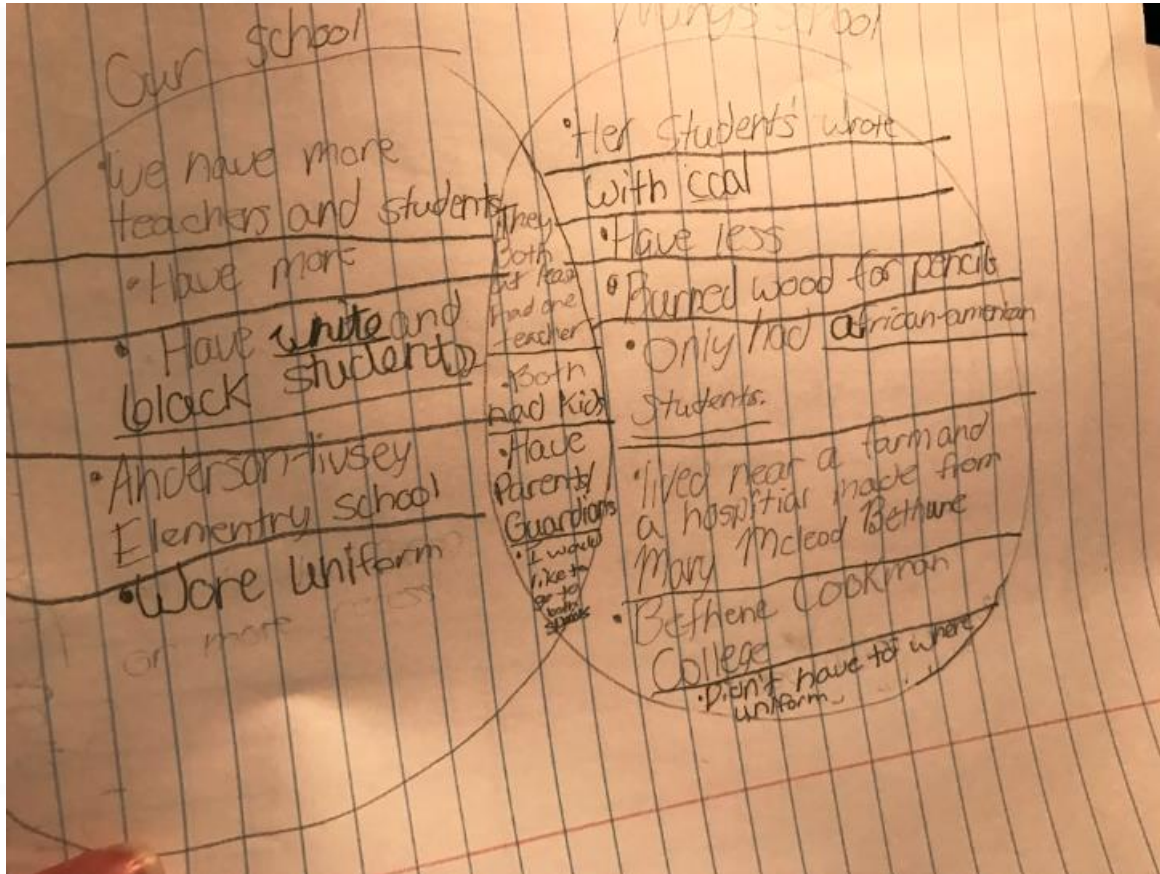 Our school
Mary's school
•We have more
teachers and students
•Have more
• Have white and
black students
•Anderson-livsey
Elementry school
•Wore uniform
or more
They
Both
at least
had one
teacher
•Both
had kids
•Have
Parents/
Guardians
•I would
like to
go to
both
•Her student's wrote
with coal
•Have less
•Burned wood for pencils
•Only had african-amerikan
students.
•lived near a farm and
a hospitial made from
Mary Mcleod Bethune
•Bethene Cookman
College
•Didn't have to where
uniform